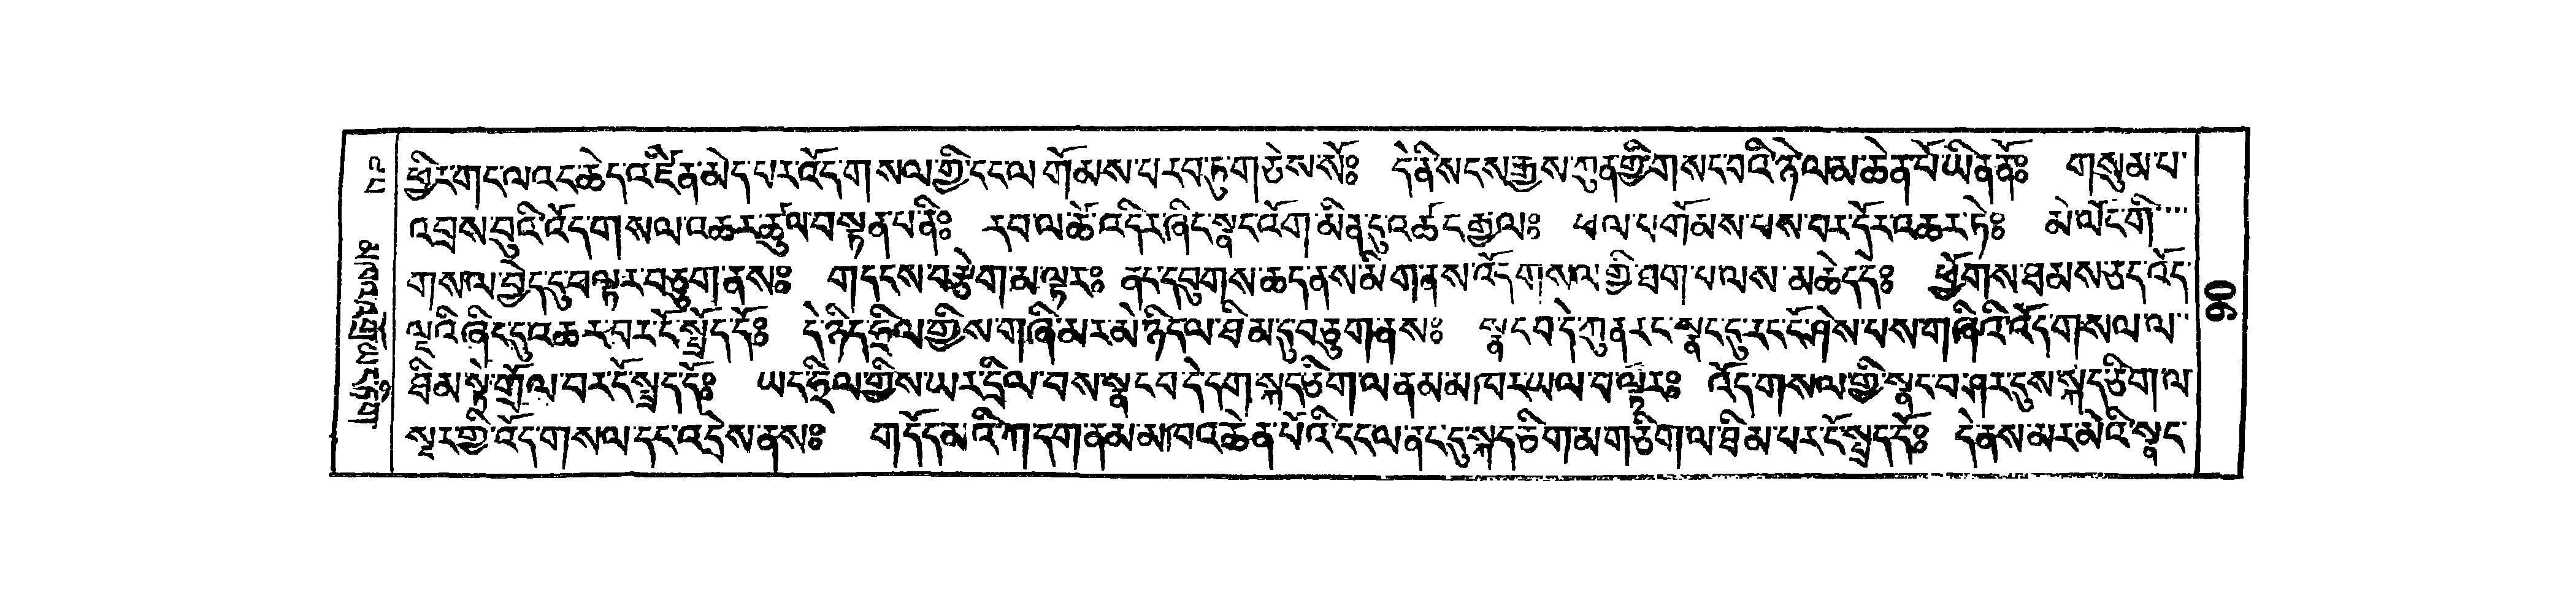 ཕྱིར་གང་ལ་འང་ཆེད་འཛིན་མེད་པར་འོད་གསལ་གྱི་ངང་ལ་གོམས་པར་བཏུག་ཅེས་སོ༔ དེ་ནི་སངས་རྒྱས་ཀུན་གྱི་གསང་བའི་ཉེ་ལམ་ཆེན་པོ་ཡིན་ནོ༔ གསུམ་པ་
འབྲས་བུའི་འོད་གསལ་འཆར་ཚུལ་བསྟན་པ་ནི༔ རབ་ལ་ཚེ་འདིར་ཞིང་སྣང་འོག་མིན་དུ་འཚང་རྒྱལ༔ ཕལ་པ་གོམས་པས་བར་དོར་འཆར་ཏེ༔ མེ་ལོང་གི་
གསལ་བྱེད་དུ་ཕལྟར་བཅུག་ནས༔ གདངས་བརྩེགམ་ལྟར༔ ནང་དབུགས་ཆད་ནས་མི་གནས་འོད་གསལ་གྱི་ཐག་པ་ལས་མཆེད་དེ༔ ཕྱོགས་ཐམས་ཅད་འོད་
ལྔའི་ཞིང་དུ་འཆར་བར་ངོ་སྤྲོད་དོ༔ དེ་ཉིད་ཧྲིལ་གྱིས་གཞི་མར་མེ་ཉིད་ལ་ཐིམ་དུ་བཅུག་ནས༔ སྣང་བ་དེ་ཀུན་རང་སྣང་དུ་རང་ངོ་ཤེས་པས་གཞིའི་འོད་གསལ་ལ་
ཐིམ་སྟེ་གྲོལ་བར་ངོ་སྤྲད་དོ༔ ཡང་ཧྲིལ་གྱིས་ཡར་དྲིལ་བས་སྣང་བ་དེ་དག་སྐད་ཅིག་ལ་ནམ་མཁར་ཡལ་བ་ལྟར༔ འོད་གསལ་གྱི་སྣང་བ་ཤར་དུས་སྐད་ཅིག་ལ་
སྔར་གྱི་འོད་གསལ་དང་འདྲེས་ནས༔ གདོད་མའི་ཀ་དག་ནམ་མཁའ་ཆེན་པོའི་ངང་ལ་ནང་དུ་སྐད་ཅིག་མ་གཅིག་ལ་ཐིམ་པར་ངོ་སྤྲད་དོ༔ དེ་ནས་མར་མེའི་སྣང་